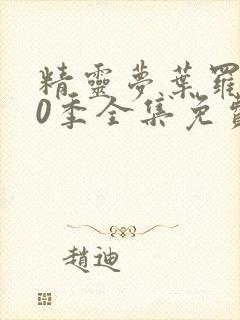 精靈夢葉羅
0季全集免費
趙迪